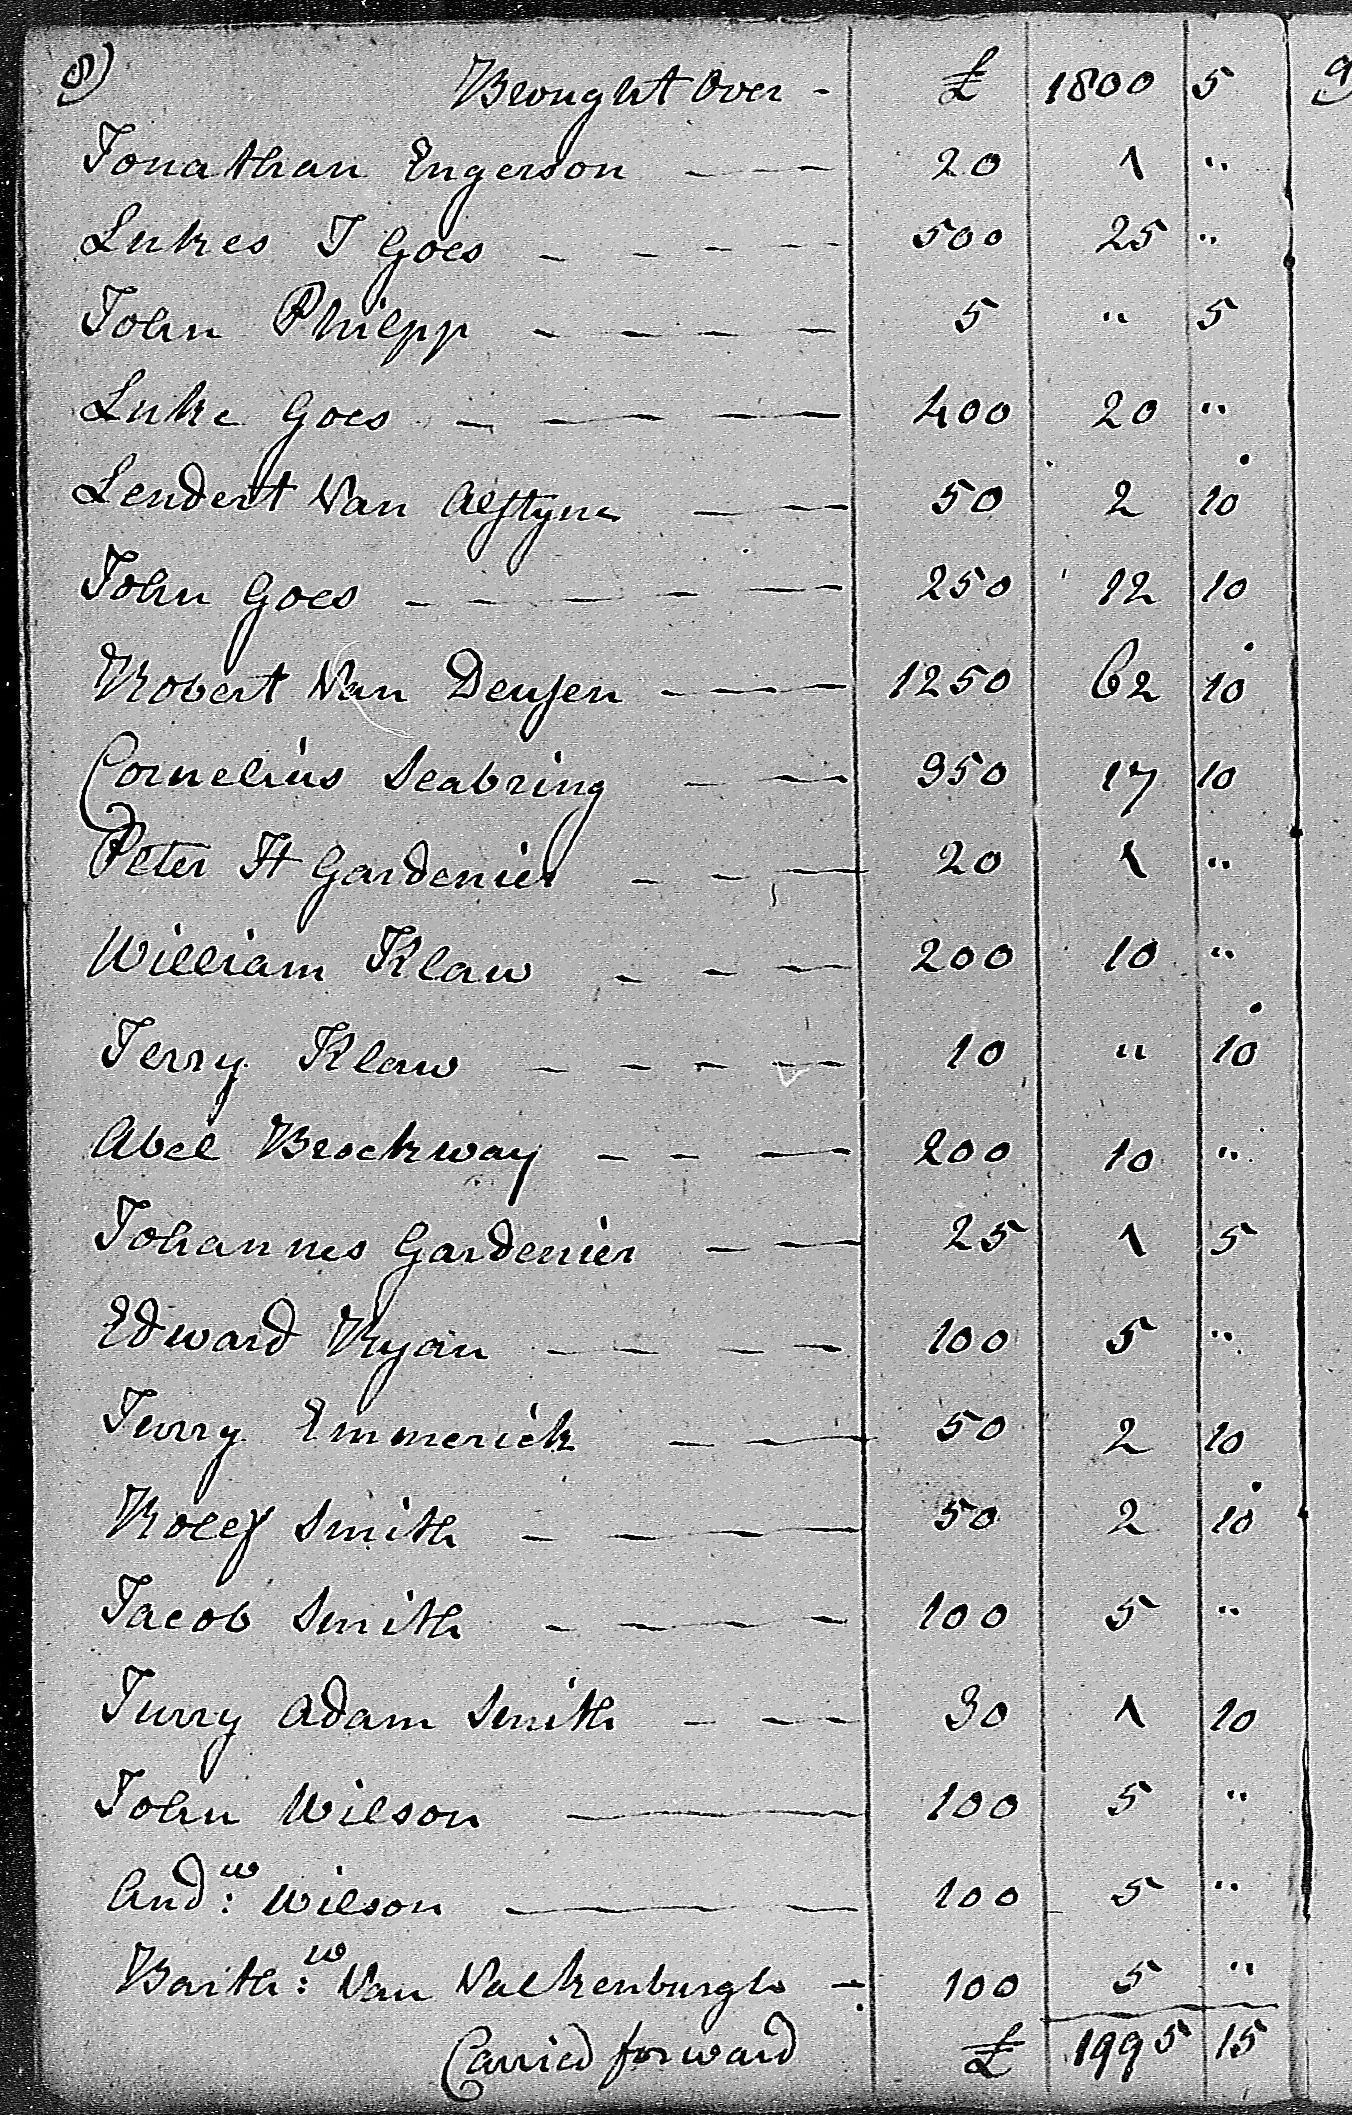 8) Brought Over - £ 1800 5
Jonathan Engerson 20 1 "
Lukes I Goes 500 25 "
John Philpp 5 " 5
Luke Goes 400 20 "
Lendert Van Alstyne 50 2 10
John Goes 250 12 10
Robert Van Deusen 1250 62 10
Cornelius Seabring 350 17 10
Peter H Gardenier 20 1 "
William Klaw 200 10 "
Jerry Klaw 10 " 10
Abel Brockway 200 10 "
Johannes Gardenier 25 1 5
Edward Ryan 100 5 "
Jurry Emmerick 50 2 10
Rolef Smith 50 2 10
Jacob Smith 100 5 "
Jurry Adam Smith 30 1 10
John Wilson 100 5 "
Andw: Wilson 100 5 "
Barthw: Van Valkenburgh 100 5 "
Carried forward £ 1995 15
9)